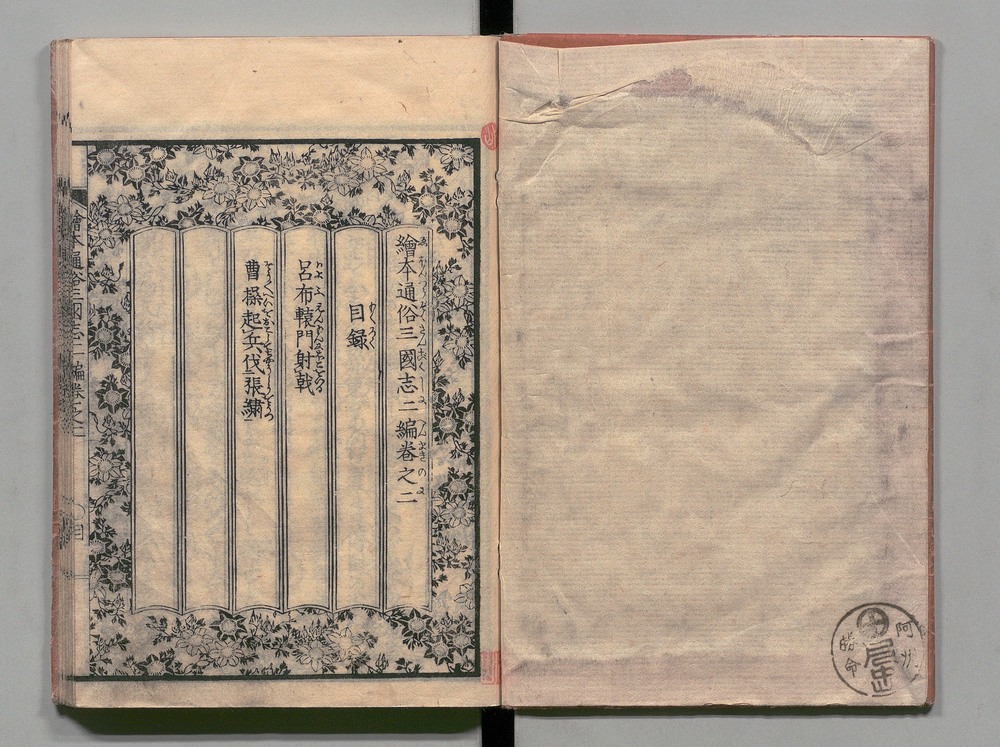 繪本通俗三國志二編卷之二
目録
もくろく
呂布轅門射戟
曹操起兵伐張繡
繪本通俗三國志二編卷之二
目
阿州
勝命